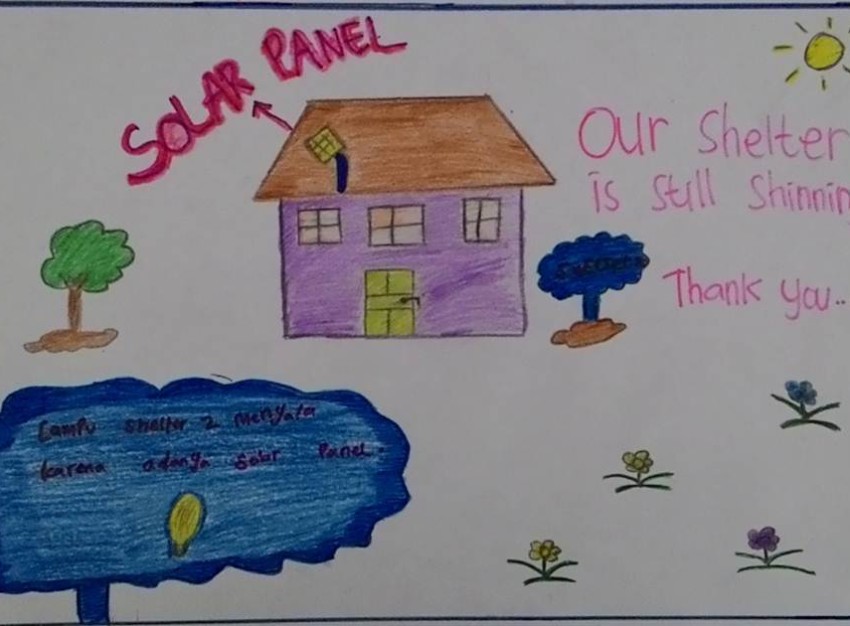 SOLAR PANEL
Our Shelter
is Still Shinnin
Thank you..
Lampu Shelter 2 Menyala
karena adanya Solar Panel.